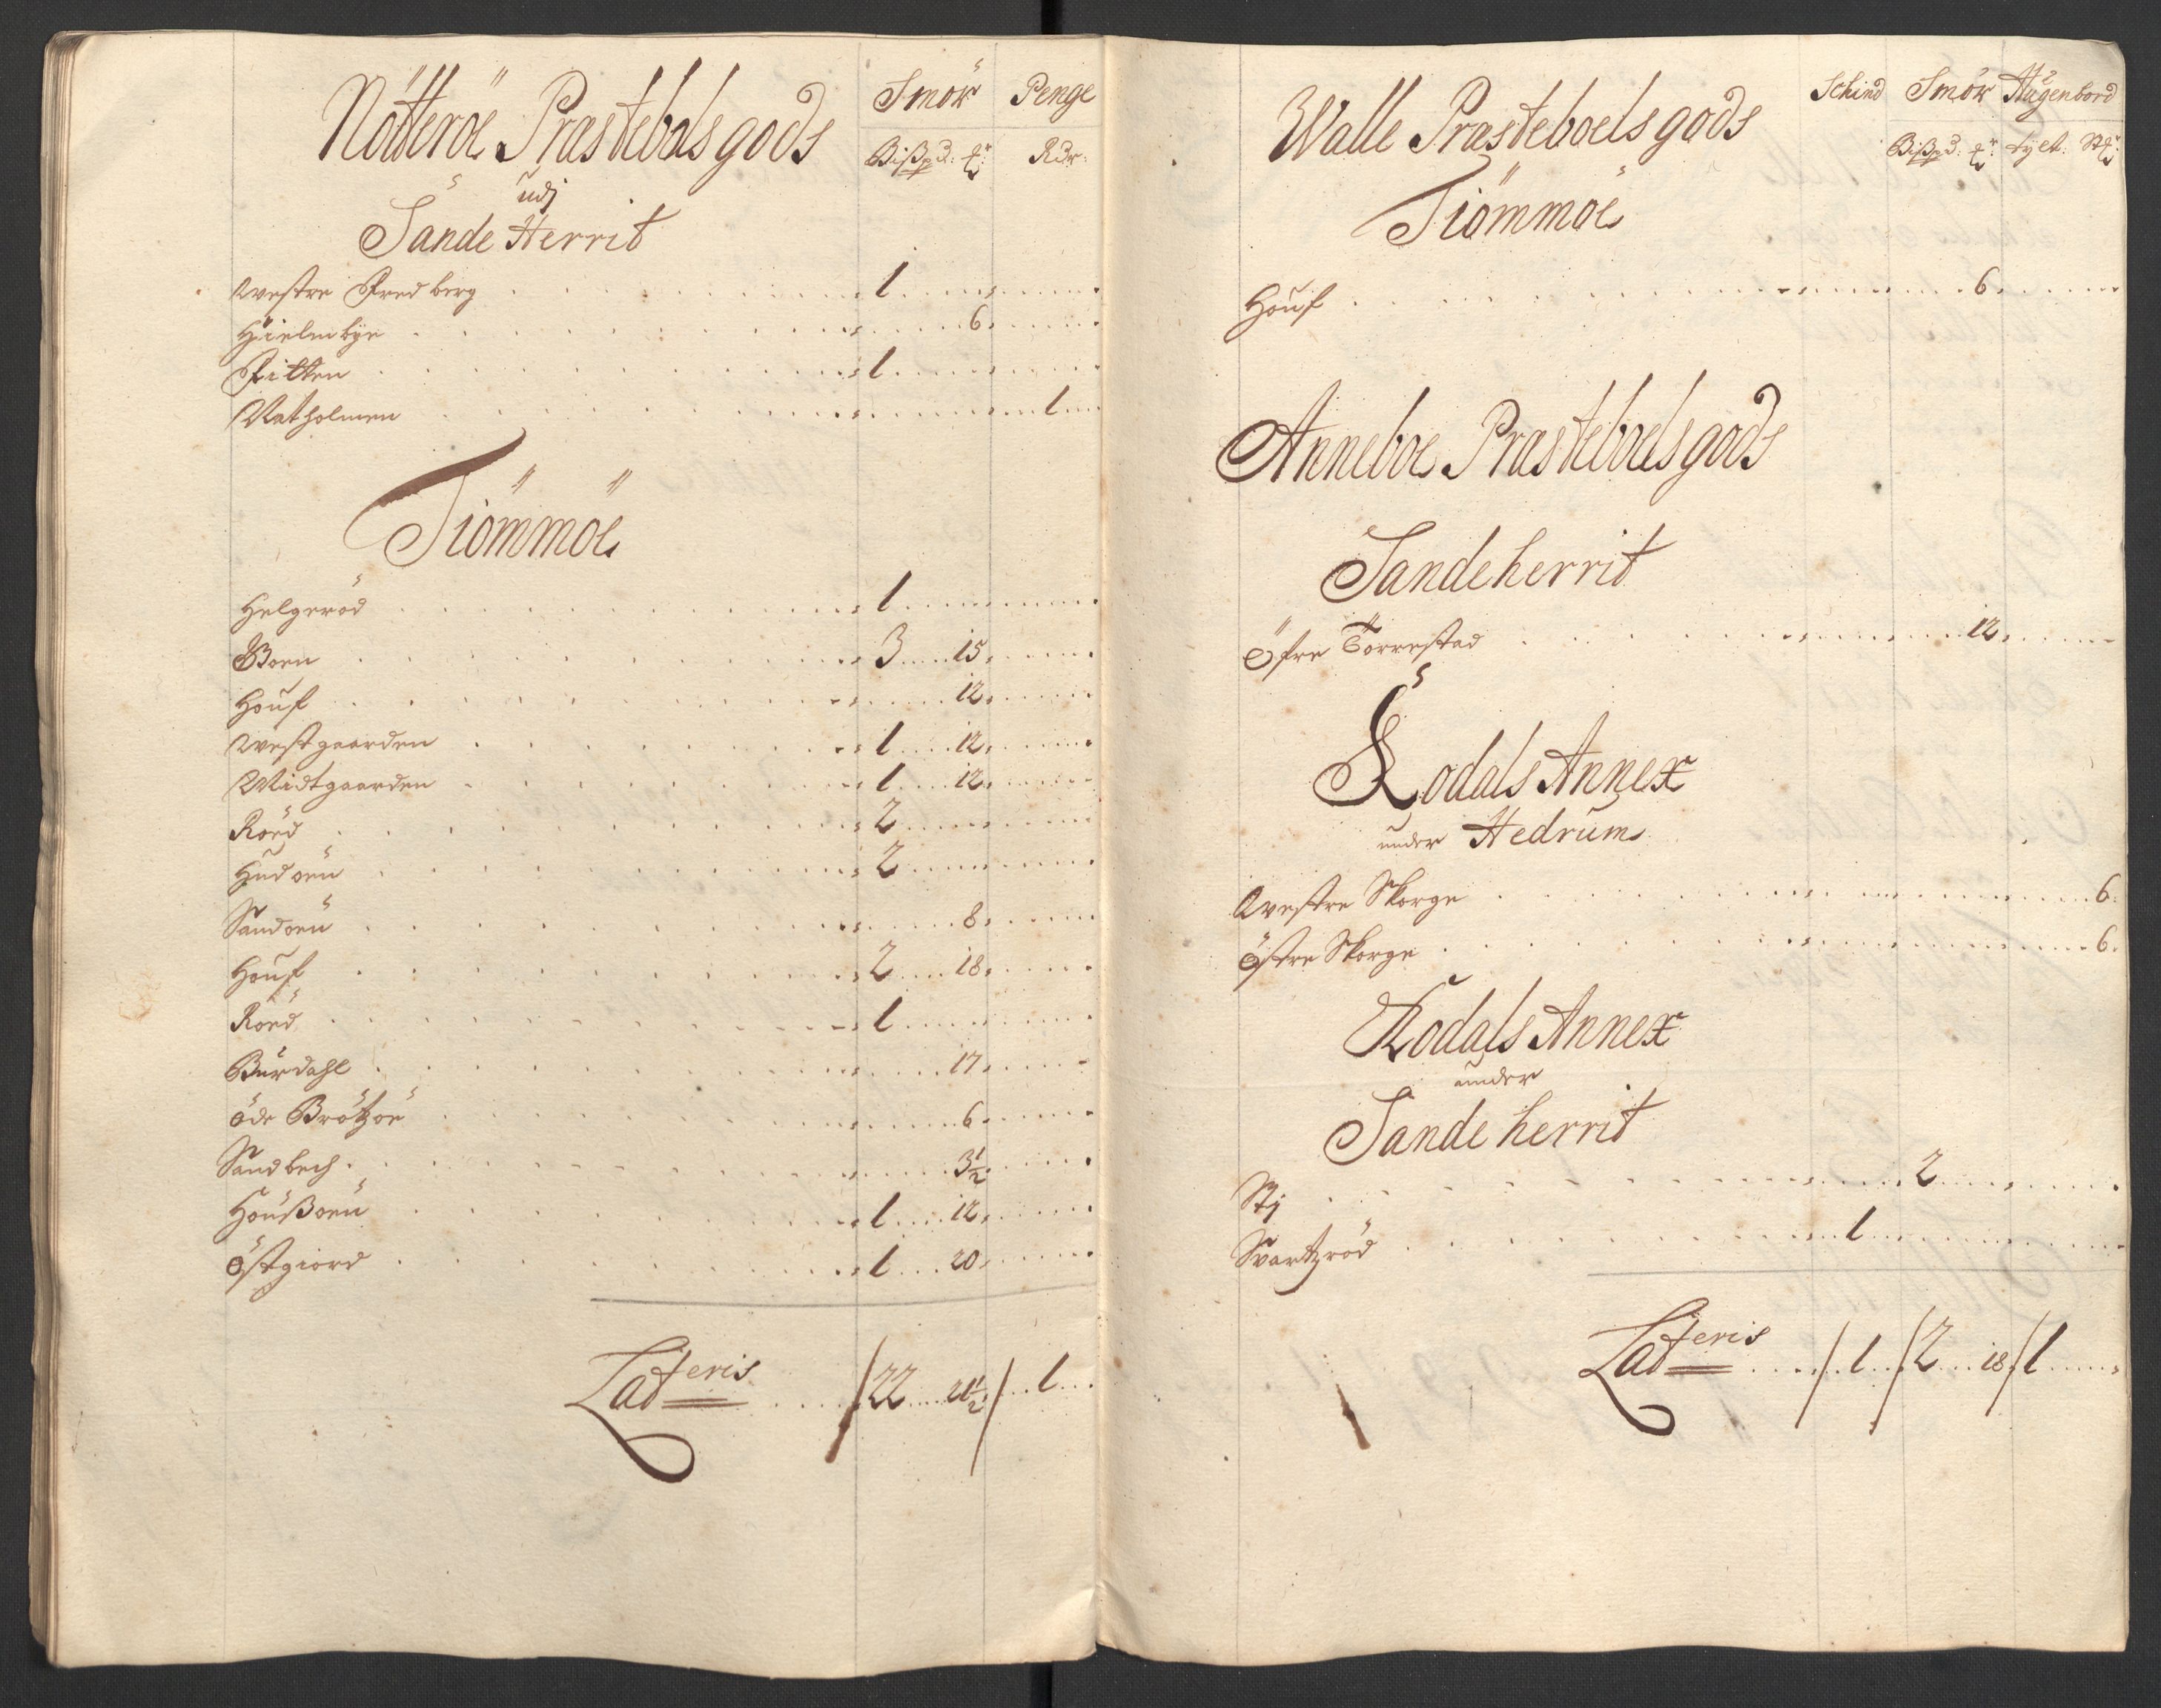 Nötteröe Præstebols gods
udj
Sande Herrit
Smör Penge
Bißpd: Rdr:
Westre Fredberg 1
Hielmbye 6
Fitten 1
Natholmen 1
Tiömmöe
Helgeröd 1
Boen 3 15
Houf 12
Westgaarden 1 12
Midtgaarden 1 12
Röed 2
Hudöen 2
Sandöen 8
Houf 2 18
Röed 1
Burdahl 17
Öde Brötzöe 6
Sandbech 3½
Houßöen 1 12
Östgiord 1 20
Lateris / 22 21½ / 1
Walle Præsteboels gods
Schind Smör Hugenbord
Bißpd: tylt:
Tiömmöe
Houf 6
Anneboe Præsteboels gods
Sandeherrit
Öfre Törrestad 12
Kodals Annex
under Hedrum
Westre Skorge 6
Östre Skorge 6
Kodals Annex
under
Sande herrit
Sti 2
Svartzröd 1
Lateris / 1 / 2 18 / 1